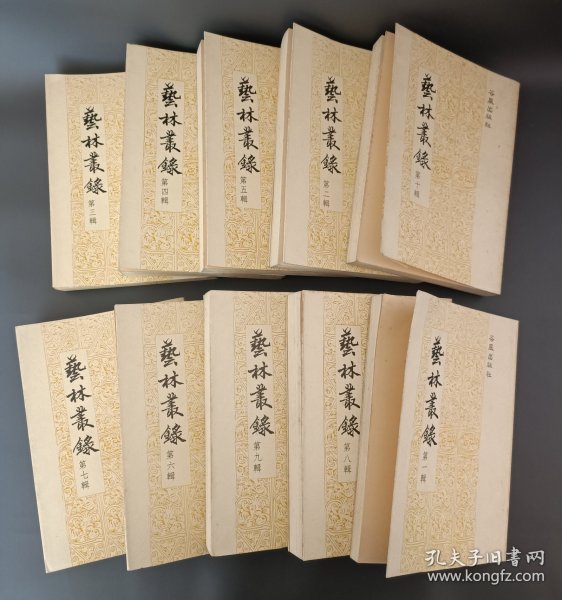 藝林叢錄
第三輯
藝林叢錄
第四輯
藝林叢錄
第五輯
藝林叢錄
第二輯
藝林叢錄
第十輯
谷風出版社
藝林叢錄
第七輯
藝林叢錄
第六輯
藝林叢錄
第九輯
藝林叢錄
第八輯
藝林叢錄
第一輯
谷風出版社
孔夫子旧书网
www.kongfz.com